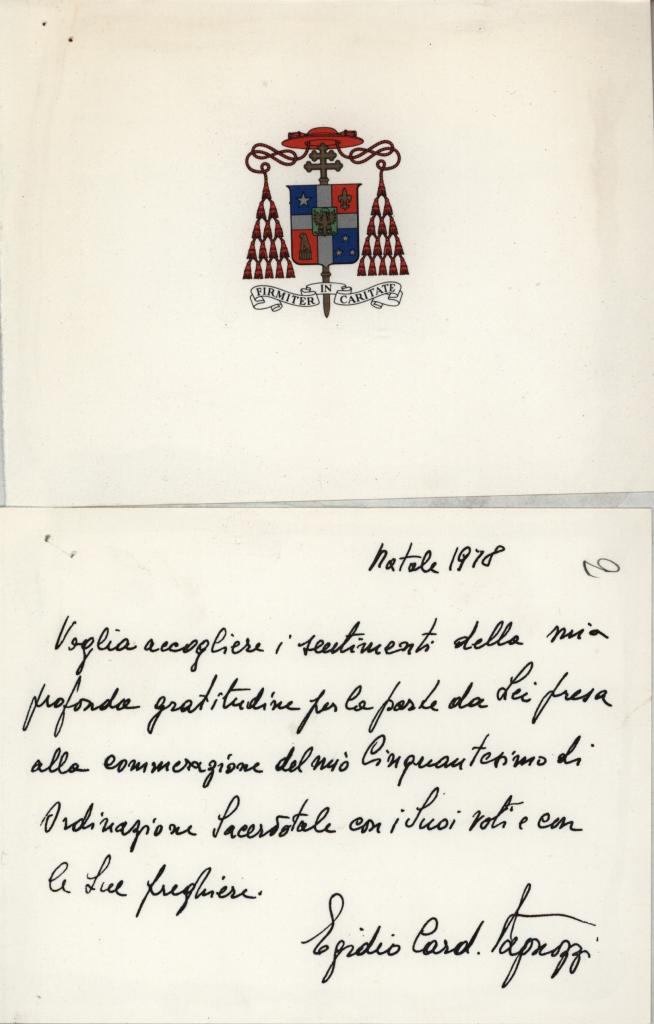 FIRMITER IN CARITATE
Natale 1978
Voglia accogliere i sentimenti della mia
profonda gratitudine per la parte da Lei presa
alla commerazione del mio Cinquantesimo di
Ordinazione Sacerdotale con i Suoi voti e con
le Sue preghiere.
Egidio Card. Vagnozzi